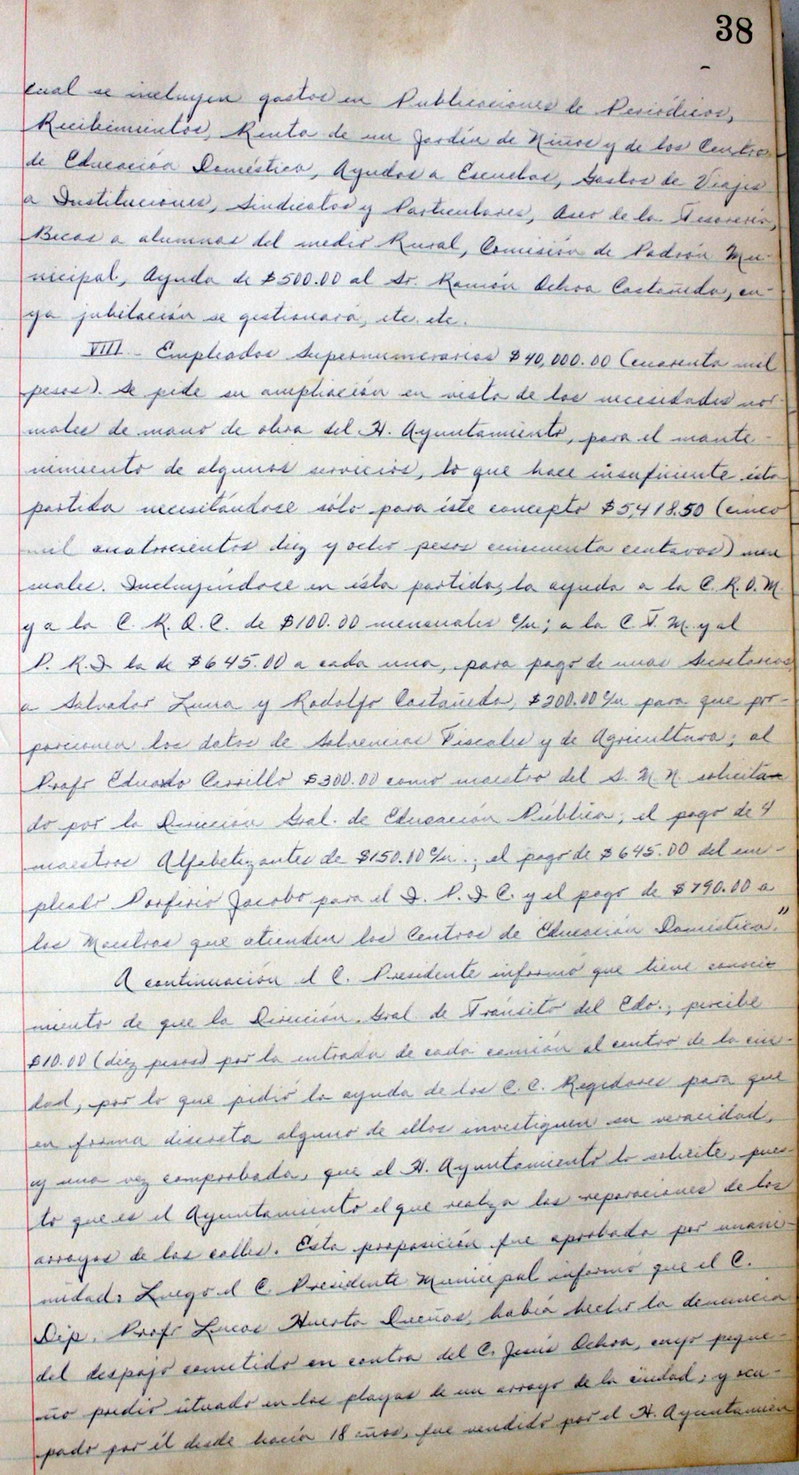 38
cual se incluyen gastos en Publicaciones de Periódicos,
Recibimientos, Renta de un Jardín de Niños y de los Centros
de Educación Doméstica, Ayudas a Escuelas, Gastos de Viajes
a Instituciones, Sindicatos y Particulares, Aseo de la Tesorería,
Becas a alumnas del medio Rural, Comisión de Padrón Mu-
nicipal, Ayuda de $500.00 al Sr. Ramón Ochoa Castañeda, cu-
ya jubilación se gestionará, etc. etc.
VIII.- Empleados Supernumerarios $40,000.00 (cuarenta mil
pesos). Se pide su ampliación en vista de las necesidades nor-
males de mano de obra del H. Ayuntamiento, para el mante-
nimiento de algunos servicios, lo que hace insuficiente ésta
partida necesitándose sólo para éste concepto $5,418.50 (cinco
mil cuatrocientos diez y ocho pesos cincuenta centavos) men
suales. Incluyéndose en ésta partida, la ayuda a la C.R.O.M.
y a la C. R. O. C. de $100.00 mensuales c/u; a la C.T.M. y al
P.R.I. la de $645.00 a cada una, para pago de unas Secretarias,
a Salvador Luna y Rodolfo Castañeda, $200.00 c/u para que pro-
porcionen los datos de Solvencias Fiscales y de Agricultura; al
Profr Eduardo Carrillo $300.00 como maestro del S. M. N. solicita-
do por la Dirección Gral. de Educación Pública; el pago de 4
maestros Alfabetizantes de $150.00 c/u.; el pago de $645.00 del em-
pleado Porfirio Jacobo para el I. P. I. C. y el pago de $790.00 a
los Maestros que atienden los Centros de Educación Doméstica."
A continuación el C. Presidente informó que tiene conoci-
miento de que la Dirección Gral. de Tránsito del Edo., percibe
$10.00 (diez pesos) por la entrada de cada camión al centro de la ciu-
dad, por lo que pidió la ayuda de los C.C. Regidores para que
en forma discreta alguno de ellos investiguen su veracidad,
y una vez comprobada, que el H. Ayuntamiento lo solicite, pues-
to que es el Ayuntamiento el que realiza las reparaciones de los
arroyos de las calles. Ésta proposición fue aprobada por unani-
midad. Luego el C. Presidente Municipal informó que el C.
Dip. Profr Lucas Huerta Dueñas, había hecho la denuncia
del despojo cometido en contra del C. Jesús Ochoa, cuyo peque-
ño predio situado en las playas de un arroyo de la ciudad, y ocu-
pado por él desde hacía 18 años, fue vendido por el H. Ayuntamien